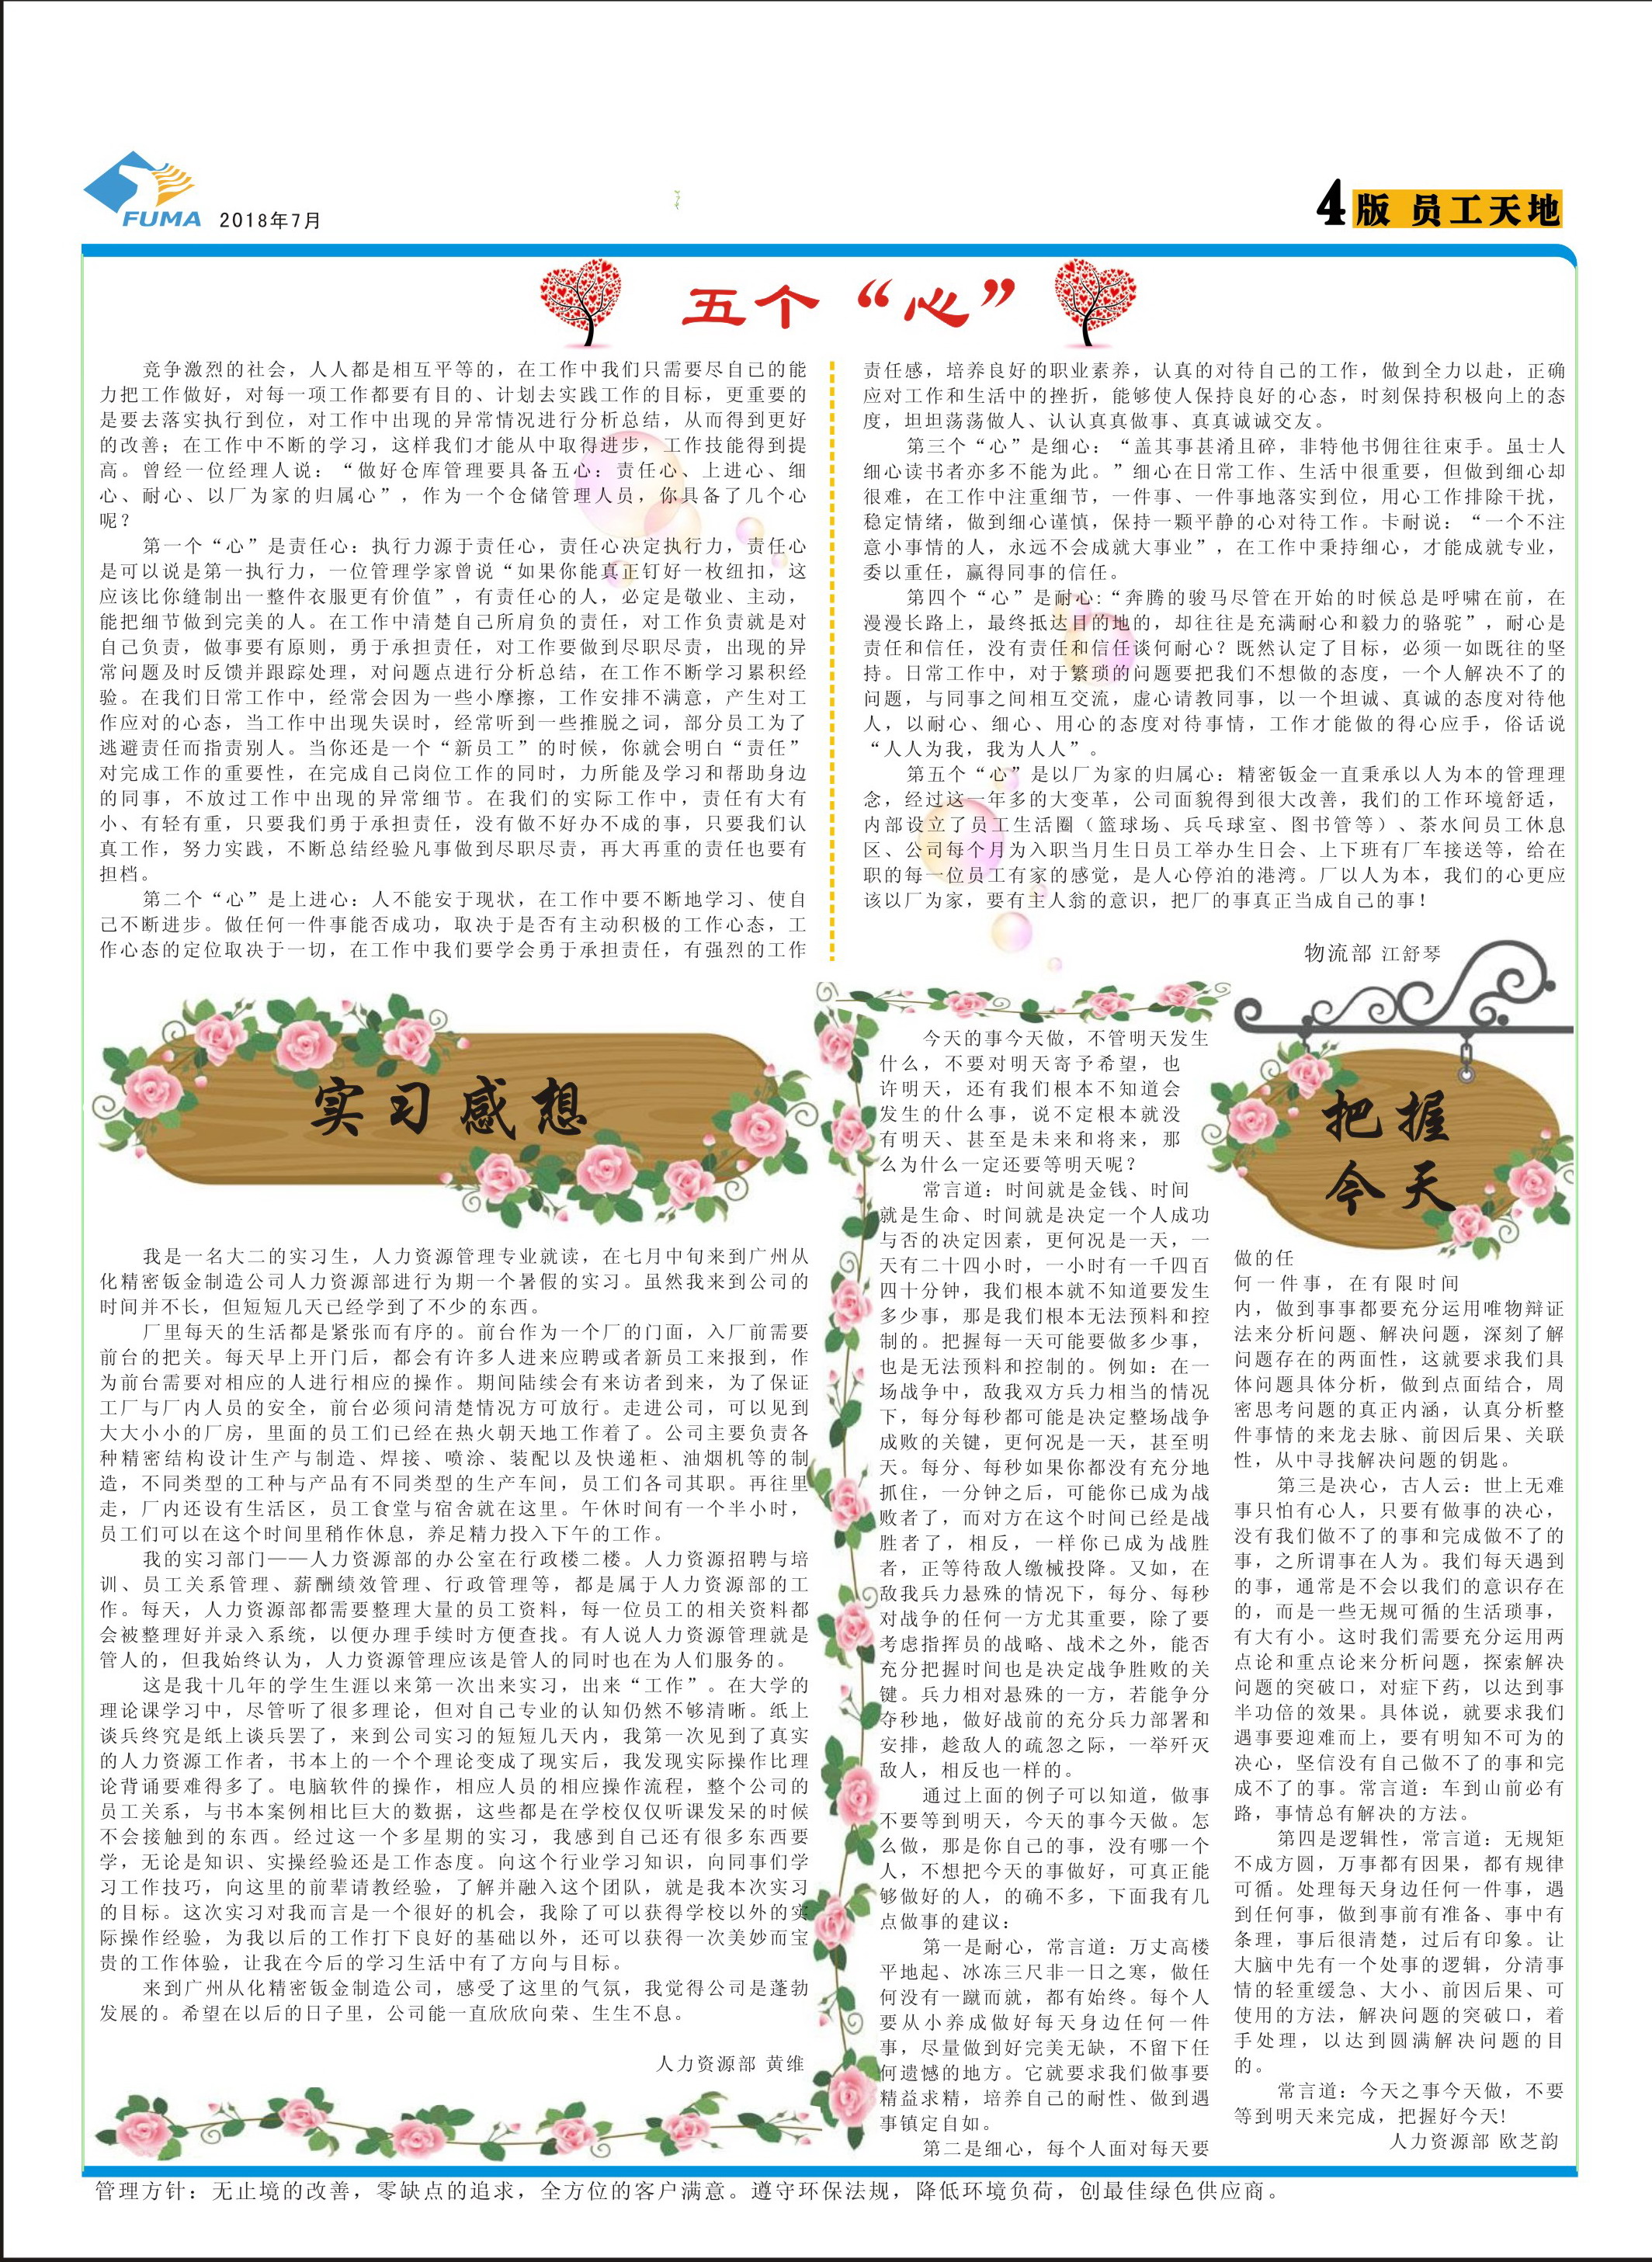 FUMA 2018年7月
4版 员工天地
五个“心”
竞争激烈的社会，人人都是相互平等的，在工作中我们只需要尽自己的能
力把工作做好，对每一项工作都要有目的、计划去实践工作的目标，更重要的
是要去落实执行到位，对工作中出现的异常情况进行分析总结，从而得到更好
的改善；在工作中不断的学习，这样我们才能从中取得进步，工作技能得到提
高。曾经一位经理人说：“做好仓库管理要具备五心：责任心、上进心、细
心、耐心、以厂为家的归属心”，作为一个仓储管理人员，你具备了几个心
呢？
第一个“心”是责任心：执行力源于责任心，责任心决定执行力，责任心
是可以说是第一执行力，一位管理学家曾说“如果你能真正钉好一枚纽扣，这
应该比你缝制出一整件衣服更有价值”，有责任心的人，必定是敬业、主动，
能把细节做到完美的人。在工作中清楚自己所肩负的责任，对工作负责就是对
自己负责，做事要有原则，勇于承担责任，对工作要做到尽职尽责，出现的异
常问题及时反馈并跟踪处理，对问题点进行分析总结，在工作不断学习累积经
验。在我们日常工作中，经常会因为一些小摩擦，工作安排不满意，产生对工
作应对的心态，当工作中出现失误时，经常听到一些推脱之词，部分员工为了
逃避责任而指责别人。当你还是一个“新员工”的时候，你就会明白“责任”
对完成工作的重要性，在完成自己岗位工作的同时，力所能及学习和帮助身边
的同事，不放过工作中出现的异常细节。在我们的实际工作中，责任有大有
小、有轻有重，只要我们勇于承担责任，没有做不好办不成的事，只要我们认
真工作，努力实践，不断总结经验凡事做到尽职尽责，再大再重的责任也要有
担档。
第二个“心”是上进心：人不能安于现状，在工作中要不断地学习、使自
己不断进步。做任何一件事能否成功，取决于是否有主动积极的工作心态，工
作心态的定位取决于一切，在工作中我们要学会勇于承担责任，有强烈的工作
责任感，培养良好的职业素养，认真的对待自己的工作，做到全力以赴，正确
应对工作和生活中的挫折，能够使人保持良好的心态，时刻保持积极向上的态
度，坦坦荡荡做人、认认真真做事、真真诚诚交友。
第三个“心”是细心：“盖其事甚淆且碎，非特他书佣往往束手。虽士人
细心读书者亦多不能为此。”细心在日常工作、生活中很重要，但做到细心却
很难，在工作中注重细节，一件事、一件事地落实到位，用心工作排除干扰，
稳定情绪，做到细心谨慎，保持一颗平静的心对待工作。卡耐说：“一个不注
意小事情的人，永远不会成就大事业”，在工作中秉持细心，才能成就专业，
委以重任，赢得同事的信任。
第四个“心”是耐心:“奔腾的骏马尽管在开始的时候总是呼啸在前，在
漫漫长路上，最终抵达目的地的，却往往是充满耐心和毅力的骆驼”，耐心是
责任和信任，没有责任和信任谈何耐心？既然认定了目标，必须一如既往的坚
持。日常工作中，对于繁琐的问题要把我们不想做的态度，一个人解决不了的
问题，与同事之间相互交流，虚心请教同事，以一个坦诚、真诚的态度对待他
人，以耐心、细心、用心的态度对待事情，工作才能做的得心应手，俗话说
“人人为我，我为人人”。
第五个“心”是以厂为家的归属心：精密钣金一直秉承以人为本的管理理
念，经过这一年多的大变革，公司面貌得到很大改善，我们的工作环境舒适，
内部设立了员工生活圈（篮球场、兵乓球室、图书管等）、茶水间员工休息
区、公司每个月为入职当月生日员工举办生日会、上下班有厂车接送等，给在
职的每一位员工有家的感觉，是人心停泊的港湾。厂以人为本，我们的心更应
该以厂为家，要有主人翁的意识，把厂的事真正当成自己的事！
物流部 江舒琴
实习感想
我是一名大二的实习生，人力资源管理专业就读，在七月中旬来到广州从
化精密钣金制造公司人力资源部进行为期一个暑假的实习。虽然我来到公司的
时间并不长，但短短几天已经学到了不少的东西。
厂里每天的生活都是紧张而有序的。前台作为一个厂的门面，入厂前需要
前台的把关。每天早上开门后，都会有许多人进来应聘或者新员工来报到，作
为前台需要对相应的人进行相应的操作。期间陆续会有来访者到来，为了保证
工厂与厂内人员的安全，前台必须问清楚情况方可放行。走进公司，可以见到
大大小小的厂房，里面的员工们已经在热火朝天地工作着了。公司主要负责各
种精密结构设计生产与制造、焊接、喷涂、装配以及快递柜、油烟机等的制
造，不同类型的工种与产品有不同类型的生产车间，员工们各司其职。再往里
走，厂内还设有生活区，员工食堂与宿舍就在这里。午休时间有一个半小时，
员工们可以在这个时间里稍作休息，养足精力投入下午的工作。
我的实习部门——人力资源部的办公室在行政楼二楼。人力资源招聘与培
训、员工关系管理、薪酬绩效管理、行政管理等，都是属于人力资源部的工
作。每天，人力资源部都需要整理大量的员工资料，每一位员工的相关资料都
会被整理好并录入系统，以便办理手续时方便查找。有人说人力资源管理就是
管人的，但我始终认为，人力资源管理应该是管人的同时也在为人们服务的。
这是我十几年的学生生涯以来第一次出来实习，出来“工作”。在大学的
理论课学习中，尽管听了很多理论，但对自己专业的认知仍然不够清晰。纸上
谈兵终究是纸上谈兵罢了，来到公司实习的短短几天内，我第一次见到了真实
的人力资源工作者，书本上的一个个理论变成了现实后，我发现实际操作比理
论背诵要难得多了。电脑软件的操作，相应人员的相应操作流程，整个公司的
员工关系，与书本案例相比巨大的数据，这些都是在学校仅仅听课发呆的时候
不会接触到的东西。经过这一个多星期的实习，我感到自己还有很多东西要
学，无论是知识、实操经验还是工作态度。向这个行业学习知识，向同事们学
习工作技巧，向这里的前辈请教经验，了解并融入这个团队，就是我本次实习
的目标。这次实习对我而言是一个很好的机会，我除了可以获得学校以外的实
际操作经验，为我以后的工作打下良好的基础以外，还可以获得一次美妙而宝
贵的工作体验，让我在今后的学习生活中有了方向与目标。
来到广州从化精密钣金制造公司，感受了这里的气氛，我觉得公司是蓬勃
发展的。希望在以后的日子里，公司能一直欣欣向荣、生生不息。
人力资源部 黄维
把握
今天
今天的事今天做，不管明天发生
什么，不要对明天寄予希望，也
许明天，还有我们根本不知道会
发生的什么事，说不定根本就没
有明天、甚至是未来和将来，那
么为什么一定还要等明天呢？
常言道：时间就是金钱、时间
就是生命、时间就是决定一个人成功
与否的决定因素，更何况是一天，一
天有二十四小时，一小时有一千四百
四十分钟，我们根本就不知道要发生
多少事，那是我们根本无法预料和控
制的。把握每一天可能要做多少事，
也是无法预料和控制的。例如：在一
场战争中，敌我双方兵力相当的情况
下，每分每秒都可能是决定整场战争
成败的关键，更何况是一天，甚至明
天。每分、每秒如果你都没有充分地
抓住，一分钟之后，可能你已成为战
败者了，而对方在这个时间已经是战
胜者了，相反，一样你已成为战胜
者，正等待敌人缴械投降。又如，在
敌我兵力悬殊的情况下，每分、每秒
对战争的任何一方尤其重要，除了要
考虑指挥员的战略、战术之外，能否
充分把握时间也是决定战争胜败的关
键。兵力相对悬殊的一方，若能争分
夺秒地，做好战前的充分兵力部署和
安排，趁敌人的疏忽之际，一举歼灭
敌人，相反也一样的。
通过上面的例子可以知道，做事
不要等到明天，今天的事今天做。怎
么做，那是你自己的事，没有哪一个
人，不想把今天的事做好，可真正能
够做好的人，的确不多，下面我有几
点做事的建议：
第一是耐心，常言道：万丈高楼
平地起、冰冻三尺非一日之寒，做任
何没有一蹴而就，都有始终。每个人
要从小养成做好每天身边任何一件
事，尽量做到好完美无缺，不留下任
何遗憾的地方。它就要求我们做事要
精益求精，培养自己的耐性、做到遇
事镇定自如。
第二是细心，每个人面对每天要
做的任
何一件事，在有限时间
内，做到事事都要充分运用唯物辩证
法来分析问题、解决问题，深刻了解
问题存在的两面性，这就要求我们具
体问题具体分析，做到点面结合，周
密思考问题的真正内涵，认真分析整
件事情的来龙去脉、前因后果、关联
性，从中寻找解决问题的钥匙。
第三是决心，古人云：世上无难
事只怕有心人，只要有做事的决心，
没有我们做不了的事和完成做不了的
事，之所谓事在人为。我们每天遇到
的事，通常是不会以我们的意识存在
的，而是一些无规可循的生活琐事，
有大有小。这时我们需要充分运用两
点论和重点论来分析问题，探索解决
问题的突破口，对症下药，以达到事
半功倍的效果。具体说，就要求我们
遇事要迎难而上，要有明知不可为的
决心，坚信没有自己做不了的事和完
成不了的事。常言道：车到山前必有
路，事情总有解决的方法。
第四是逻辑性，常言道：无规矩
不成方圆，万事都有因果，都有规律
可循。处理每天身边任何一件事，遇
到任何事，做到事前有准备、事中有
条理，事后很清楚，过后有印象。让
大脑中先有一个处事的逻辑，分清事
情的轻重缓急、大小、前因后果、可
使用的方法，解决问题的突破口，着
手处理，以达到圆满解决问题的目
的。
常言道：今天之事今天做，不要
等到明天来完成，把握好今天！
人力资源部 欧芝韵
管理方针：无止境的改善，零缺点的追求，全方位的客户满意。遵守环保法规，降低环境负荷，创最佳绿色供应商。